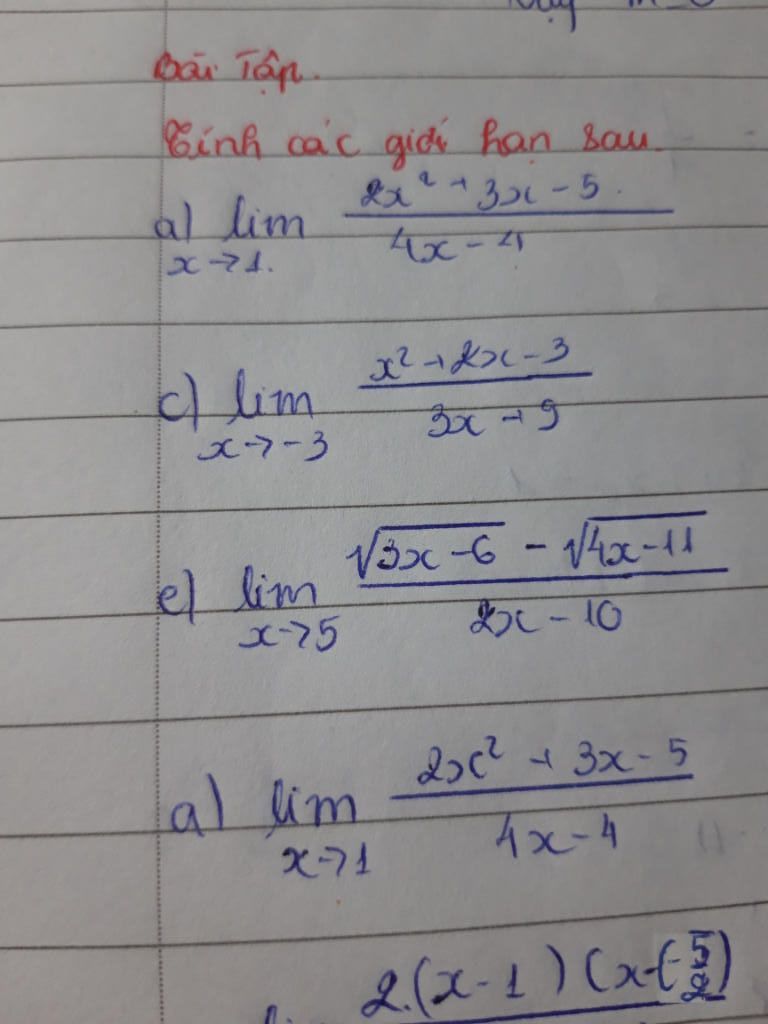 Bài Tập.
Tính các giới hạn sau.
a) lim x→1. (2x² + 3x - 5.)/(4x - 4)
c) lim x→-3 (x² + 2x - 3)/(3x + 9)
e) lim x→5 (√(3x-6) - √(4x-11))/(2x - 10)
a) lim x→1 (2x² + 3x - 5)/(4x - 4)
2.(x-1)(x-(-5/2)